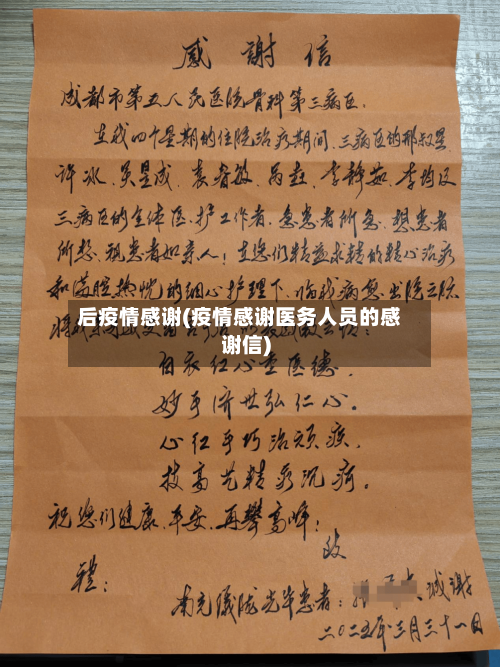 感谢信
成都市第五人民医院骨科第三病区.
在我四个星期的住院治疗期间.三病区的邢
许冰.吴昱成.袁春敏.李静茹.李均及
三病区的全体医.护工作者.急患者所急.想患者
所想.视患者如亲人!在您们精益求精的精心治疗
和满腔热忱的细心护理下.临我病愈.出院之际
后疫情感谢(疫情感谢医务人员的感
谢信)
白衣红心重医德.
妙手济世弘仁心.
心红手巧治顽疾.
技高艺精疗沉疴.
祝您们健康.平安.再攀高峰;
致
礼:
南充仪陇光华患者: 诚谢
二〇二五年.三月三十一日